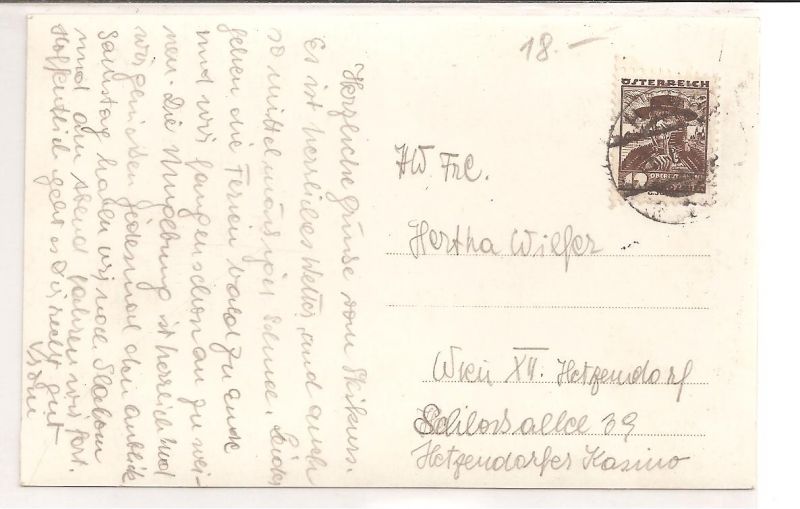 Herzliche Grüße vom Skikurs.
Es ist herrliches Wetter und auch
so mittelmäßiger Schnee. Leider
gehen die Ferien bald zu ende
und wir fangen schon an zu wei-
nen. Die Umgebung ist herrlich und
wir genießen jedesmal den Anblick
Samstag haben wir noch Slalom
und am Abend fahren wir fort.
Hoffentlich geht es Dir recht gut
18.–
ÖSTERREICH
12
HW Frl.
Hertha Wiefer
Wien XII. Hetzendorf
Schlossallee 39
Hetzendorfer Kasino